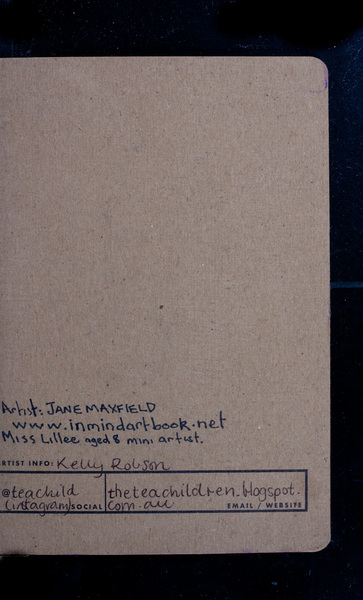 Artist: JANE MAXFIELD
www.inmindartbook.net
Miss Lillee aged 8 mini artist.
ARTIST INFO: Kelly Robson
@teachild
(instagram) SOCIAL
theteachildren.blogspot.
com.au EMAIL / WEBSITE